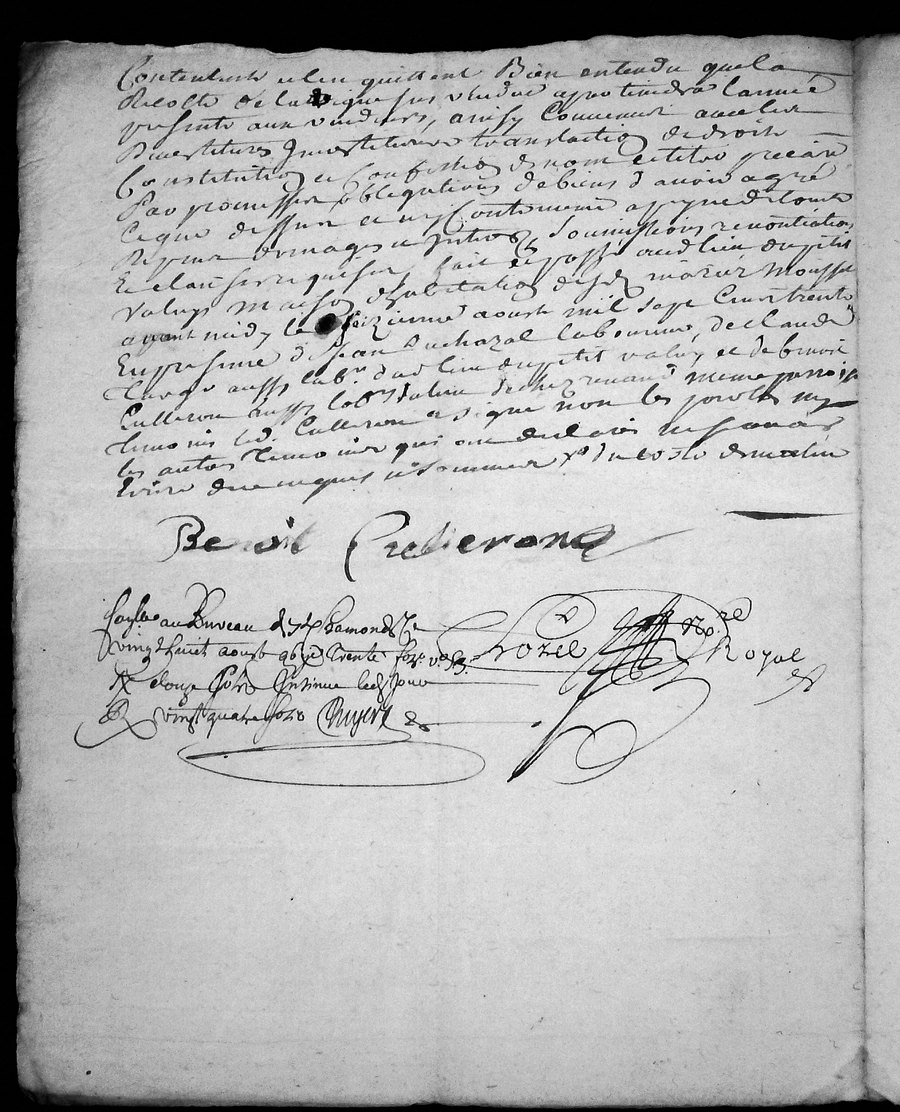 Contentent et len quittent Bien entendu que la
Recolte de la vigne sus vendue apartiendra lannée
presente aux vendeurs, ainsy Convenu avec les
Divestitures Jnvestitures translaction de droits
Constitution et Confession de nom et titre precaire
Par promesses obligations de biens d'avoir agreé
Ce que dessus et ny Contrevenir a peyne de tous
Depens domages et jnterets, soumissions renontiations
Et clauses requises, fait et passé audt lieu du petit
valuy maison d'habitation desd mariez
avant midy le seizieme aoust mil sept Cens trente
En presence de Jean Duchazal laboureur, de Claude
aussy labr. dud lieu du petit valuy et de benoit
Culleron aussy labr du lieu de chez renaud meme parroisse
temoins led. Culleron a signé non les parties ny
les autres temoins qui ont declaré ne scavoir
Ecrire de ce enquis et sommez
Benoit Culleron
au Bureau de St
vingt huit aoust trente
douze sols Jnsinué led jour
vingt quatre sols
Rozel
No.re Royal